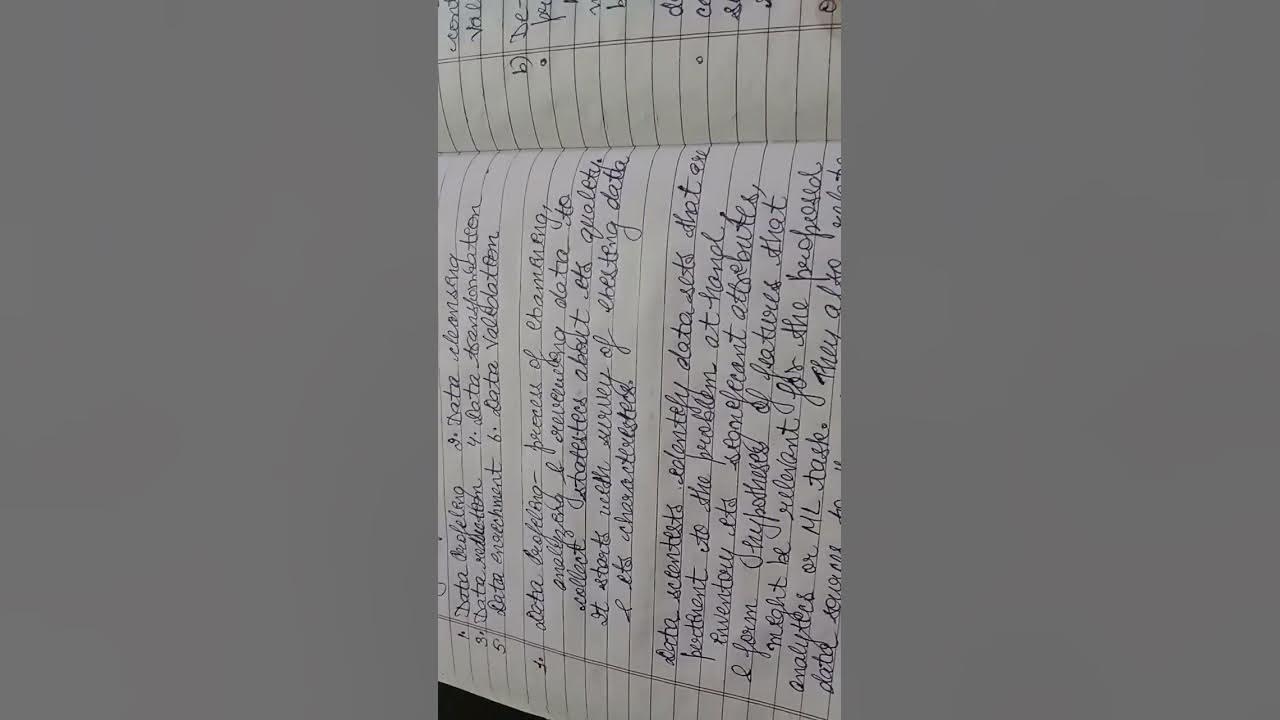 1. Data Profiling 2. Data cleansing
3. Data reduction 4. Data transformation
5. Data enrichment 6. Data Validation
1. Data Profiling - process of examining,
analyzing & reviewing data to
collect statistics about its quality.
It starts with survey of existing data
& its characteristics.
Data scientists identify data sets that are
pertinent to the problem at hand
inventory its significant attributes,
& form hypotheses of features that
might be relevant for the proposed
analytics or ML task. They also relate
data source to
cont
val
b) De-
pr